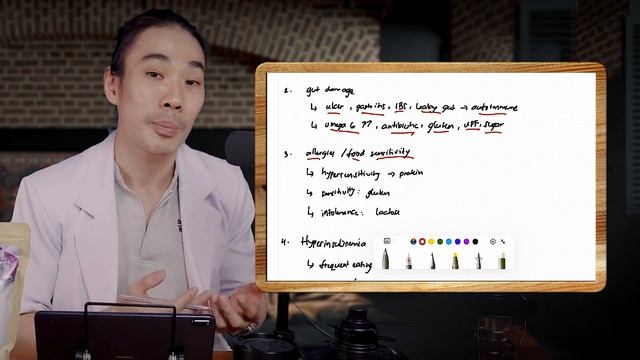 2. gut damage
↳ ulcer, gastritis, IBS, Leaky gas → autoimmune
↳ omega 6 ??, antibiotic, gluten, UPF, sugar
3. allergies / food sensitivity
↳ hypersensitivity → protein
↳ sensitivity : gluten
↳ intolerance : lactose
4. Hyperinsulinemia
↳ frequent eating